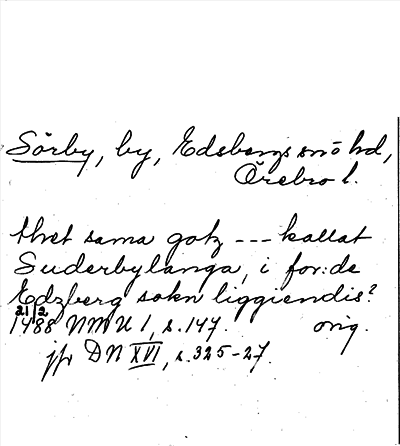 Sörby, by, Edsbergs sn o hd,
Örebro l.
thet sama gotz --- kallat
Suderbylanga, i for:de
Edzberg sokn liggiendis?
21/2
1488 NMU 1, s. 147. orig.
jfr DN XVI, s. 325-27.